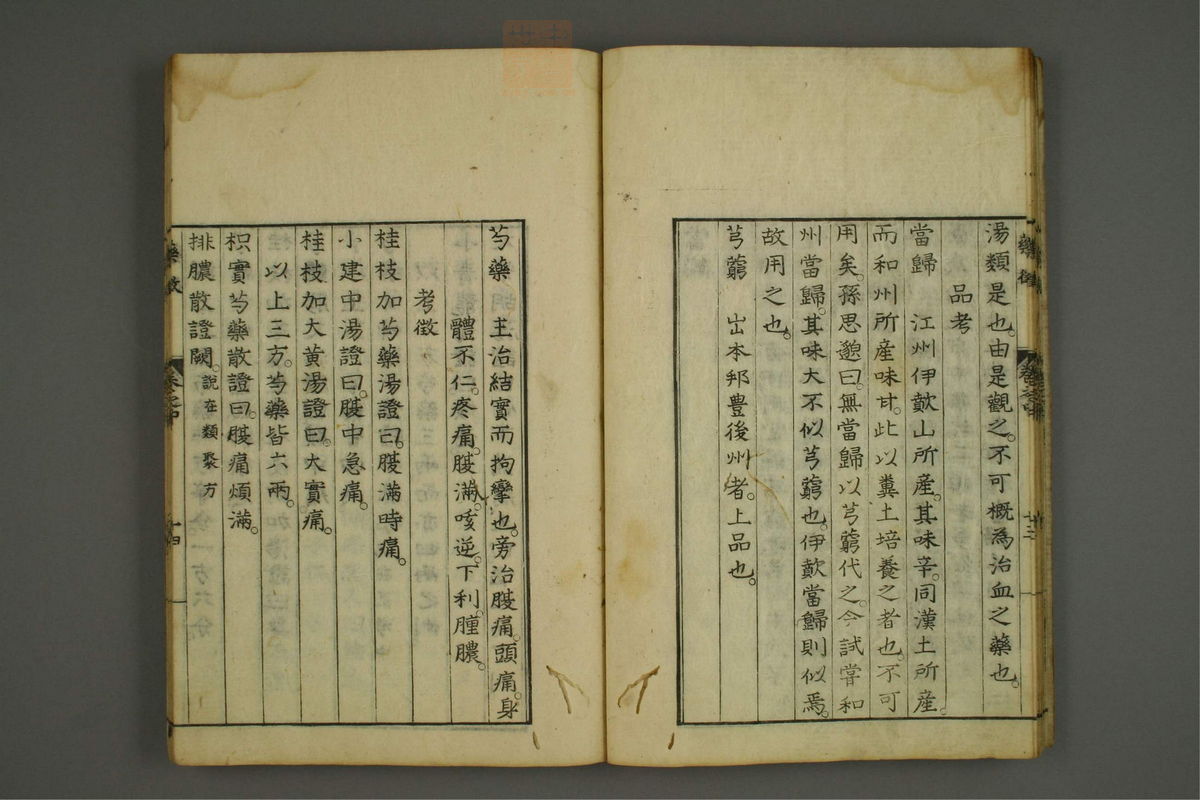 湯類是也。由是觀之。不可概為治血之藥也。
品考
當歸　江州伊歕山所産。其味辛。同漢土所産。
而和州所産味甘。此以糞土培養之者也。不可
用矣。孫思邈曰。無當歸以芎藭代之。今試嘗和
州當歸。其味大不似芎藭也。伊歕當歸則似焉。
故用之也。
芎藭　出本邦豊後州者。上品也。
芍藥　主治結實而拘攣也。旁治腹痛。頭痛。身
體不仁。疼痛。腹滿。咳逆。下利。腫膿。
考徴
桂枝加芍藥湯證曰。腹滿時痛。
小建中湯證曰。腹中急痛。
桂枝加大黃湯證曰。大實痛。
以上三方。芍藥皆六兩。
枳實芍藥散證曰。腹痛煩滿。
排膿散證闕。説在類聚方
藥徴
十四